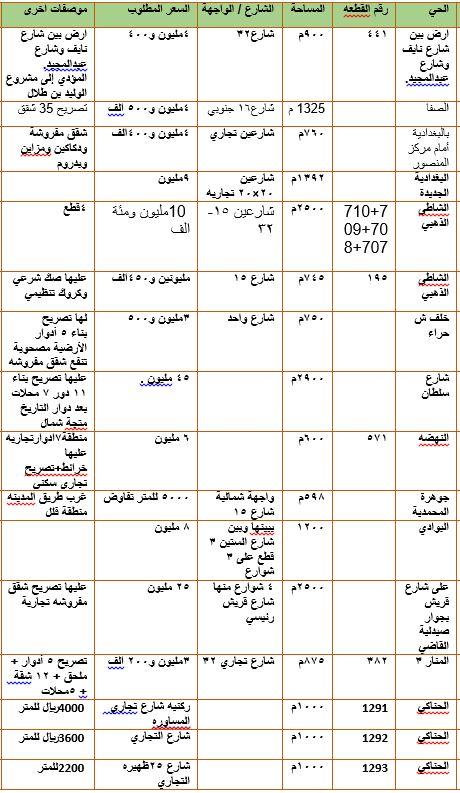 الحي | رقم القطعه | المساحة | الشارع / الواجهة | السعر المطلوب | موصفات اخرى
ارض بين شارع نايف وشارع عبدالمجيد. | ٤٤١ | ٩٠٠م | شارع٣٢ | ٤مليون و٤٠٠ | ارض بين شارع نايف وشارع عبدالمجيد. المؤدي إلى مشروع الوليد بن طلال
الصفا | | 1325 م | شارع١٦ جنوبي | ٤مليون و٥٠٠ الف | تصريح 35 شقق
بالبغدادية أمام مركز المنصور | | ٧٦٠م | شارعين تجاري | ٤مليون و٤٠٠الف | شقق مفروشة ودكاكين ومزاين وبدروم
البغدادية الجديدة | | ١٣٩٢م | شارعين ٢٠×٢٠ تجاريه | ٩مليون |
الشاطى الذهبي | 710+7 09+70 8+707 | ٢٥٠٠م | شارعين ١٥-٣٢ | 10مليون ومئة الف | ٤قطع
الشاطى الذهبي | ١٩٥ | ٧٤٥م | شارع ١٥ | مليونين و٤٥٠الف | عليها صك شرعي وكروك تنظيمي
خلف ش حراء | | ٧٥٠م | شارع واحد | ٣مليون و٥٠٠ | لها تصريح بناء ٥ أدوار الأرضية مصحوبة تنفع شقق مفروشه
شارع سلطان | | ٢٩٠٠م | | ٤٥ مليون . | عليها تصريح بناء ١١ دور ٧ محلات بعد دوار التاريخ متجة شمال
النهضه | ٥٧١ | ٦٠٠م | | ٦ مليون | منطقة٧ادوارتجاريه عليها خرائط+تصريح تجاري سكني
جوهرة المحمدية | | ٥٩٨م | واجهة شمالية شارع ١٥ | ٥٠٠٠ للمتر تفاوض | غرب طريق المدينه منطقة فلل
البوادي | | ١٢٠٠ | بيينها وبين شارع الستين ٣ قطع على ٣ شوارع | ٨ مليون |
على شارع قريش بجوار صيدلية القاضي | | ٢٥٠٠م | ٤ شوارع منها شارع قريش رئيسي | ٢٥ مليون | عليها تصريح شقق مفروشه تجارية
المنار ٣ | ٣٨٢ | ٨٧٥م | شارع تجاري ٣٢ | ٣مليون و٢٠٠ الف | تصريح ٥ أدوار + ملحق + ١٢ شقة + ٥محلات
الحناكي | 1291 | ١٠٠٠م | | ركنيه شارع تجاري المساوره | 4000ريال للمتر
الحناكي | 1292 | ١٠٠٠م | | شارع التجاري | 3600ريال للمتر
الحناكي | 1293 | ١٠٠٠م | | شارع ٢٥ظهيره التجاري | 2200للمتر